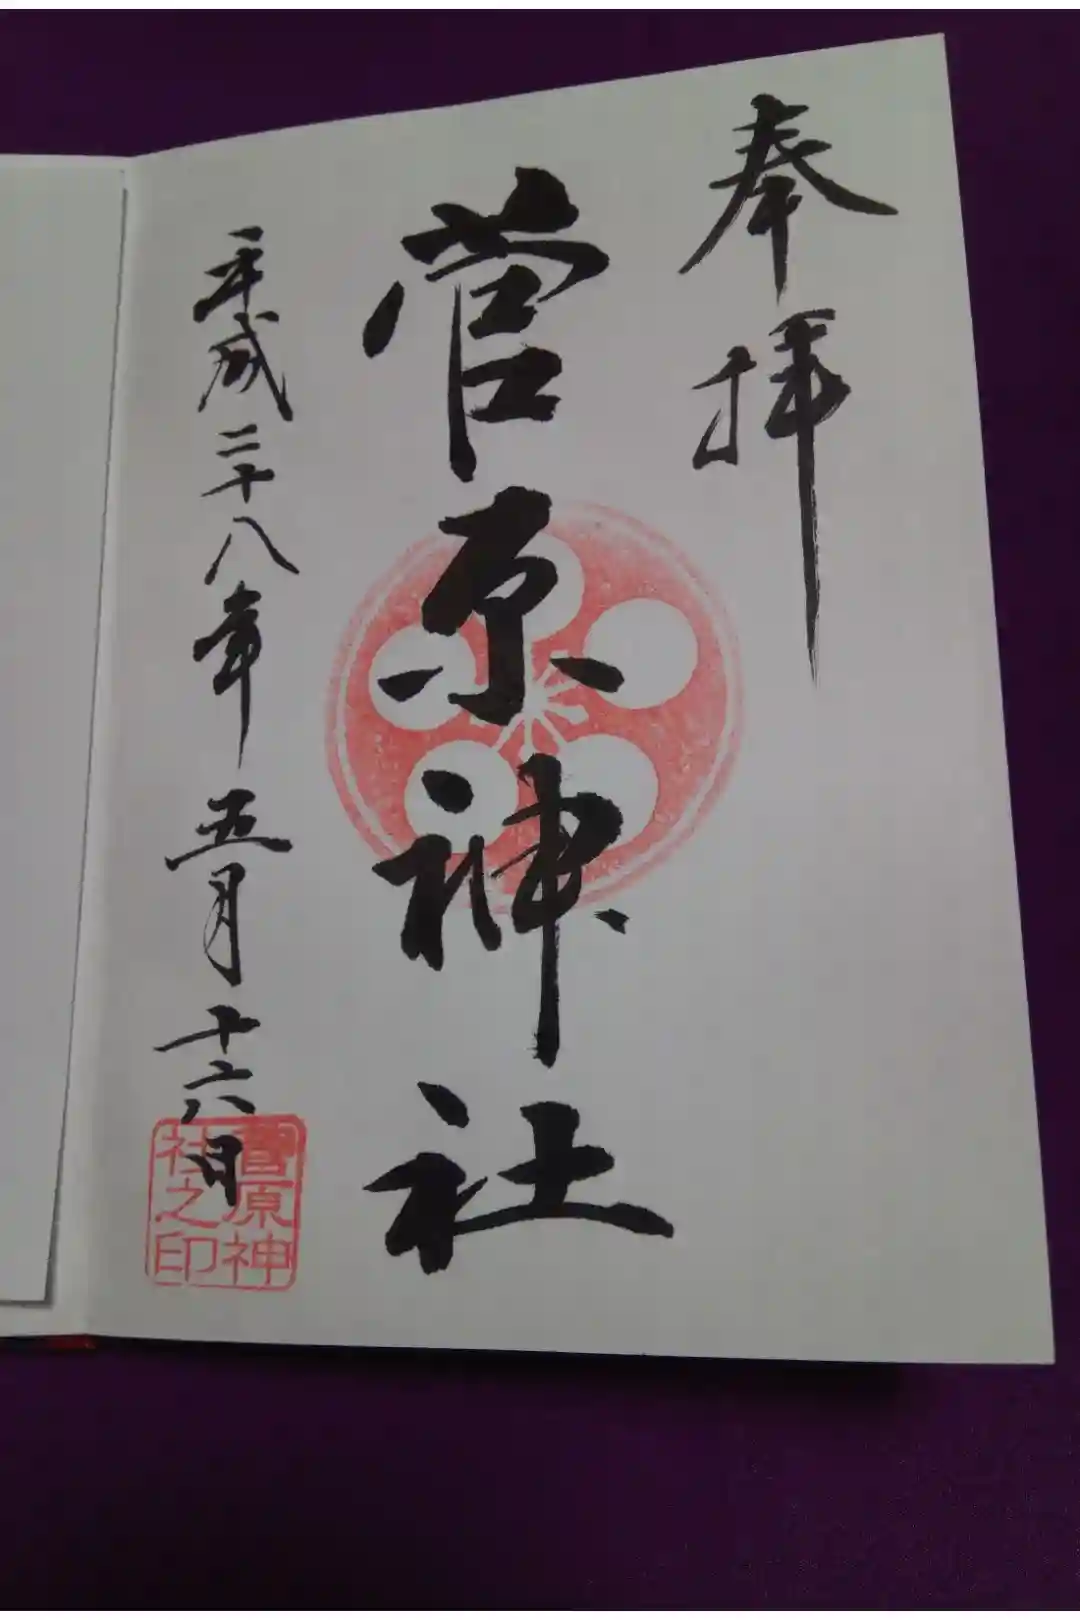 奉拝
菅原神社
平成二十八年五月十六日
菅原神社之印